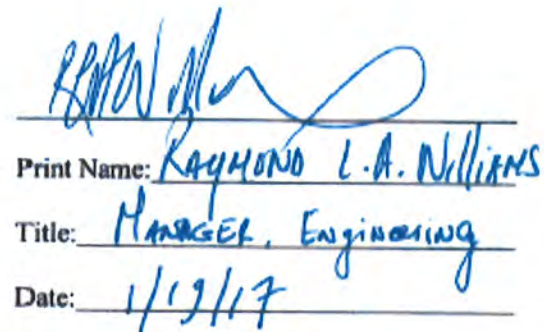 Print Name: RAYMOND L.A. Williams
Title: MANAGER, Engineering
Date: 1/19/17